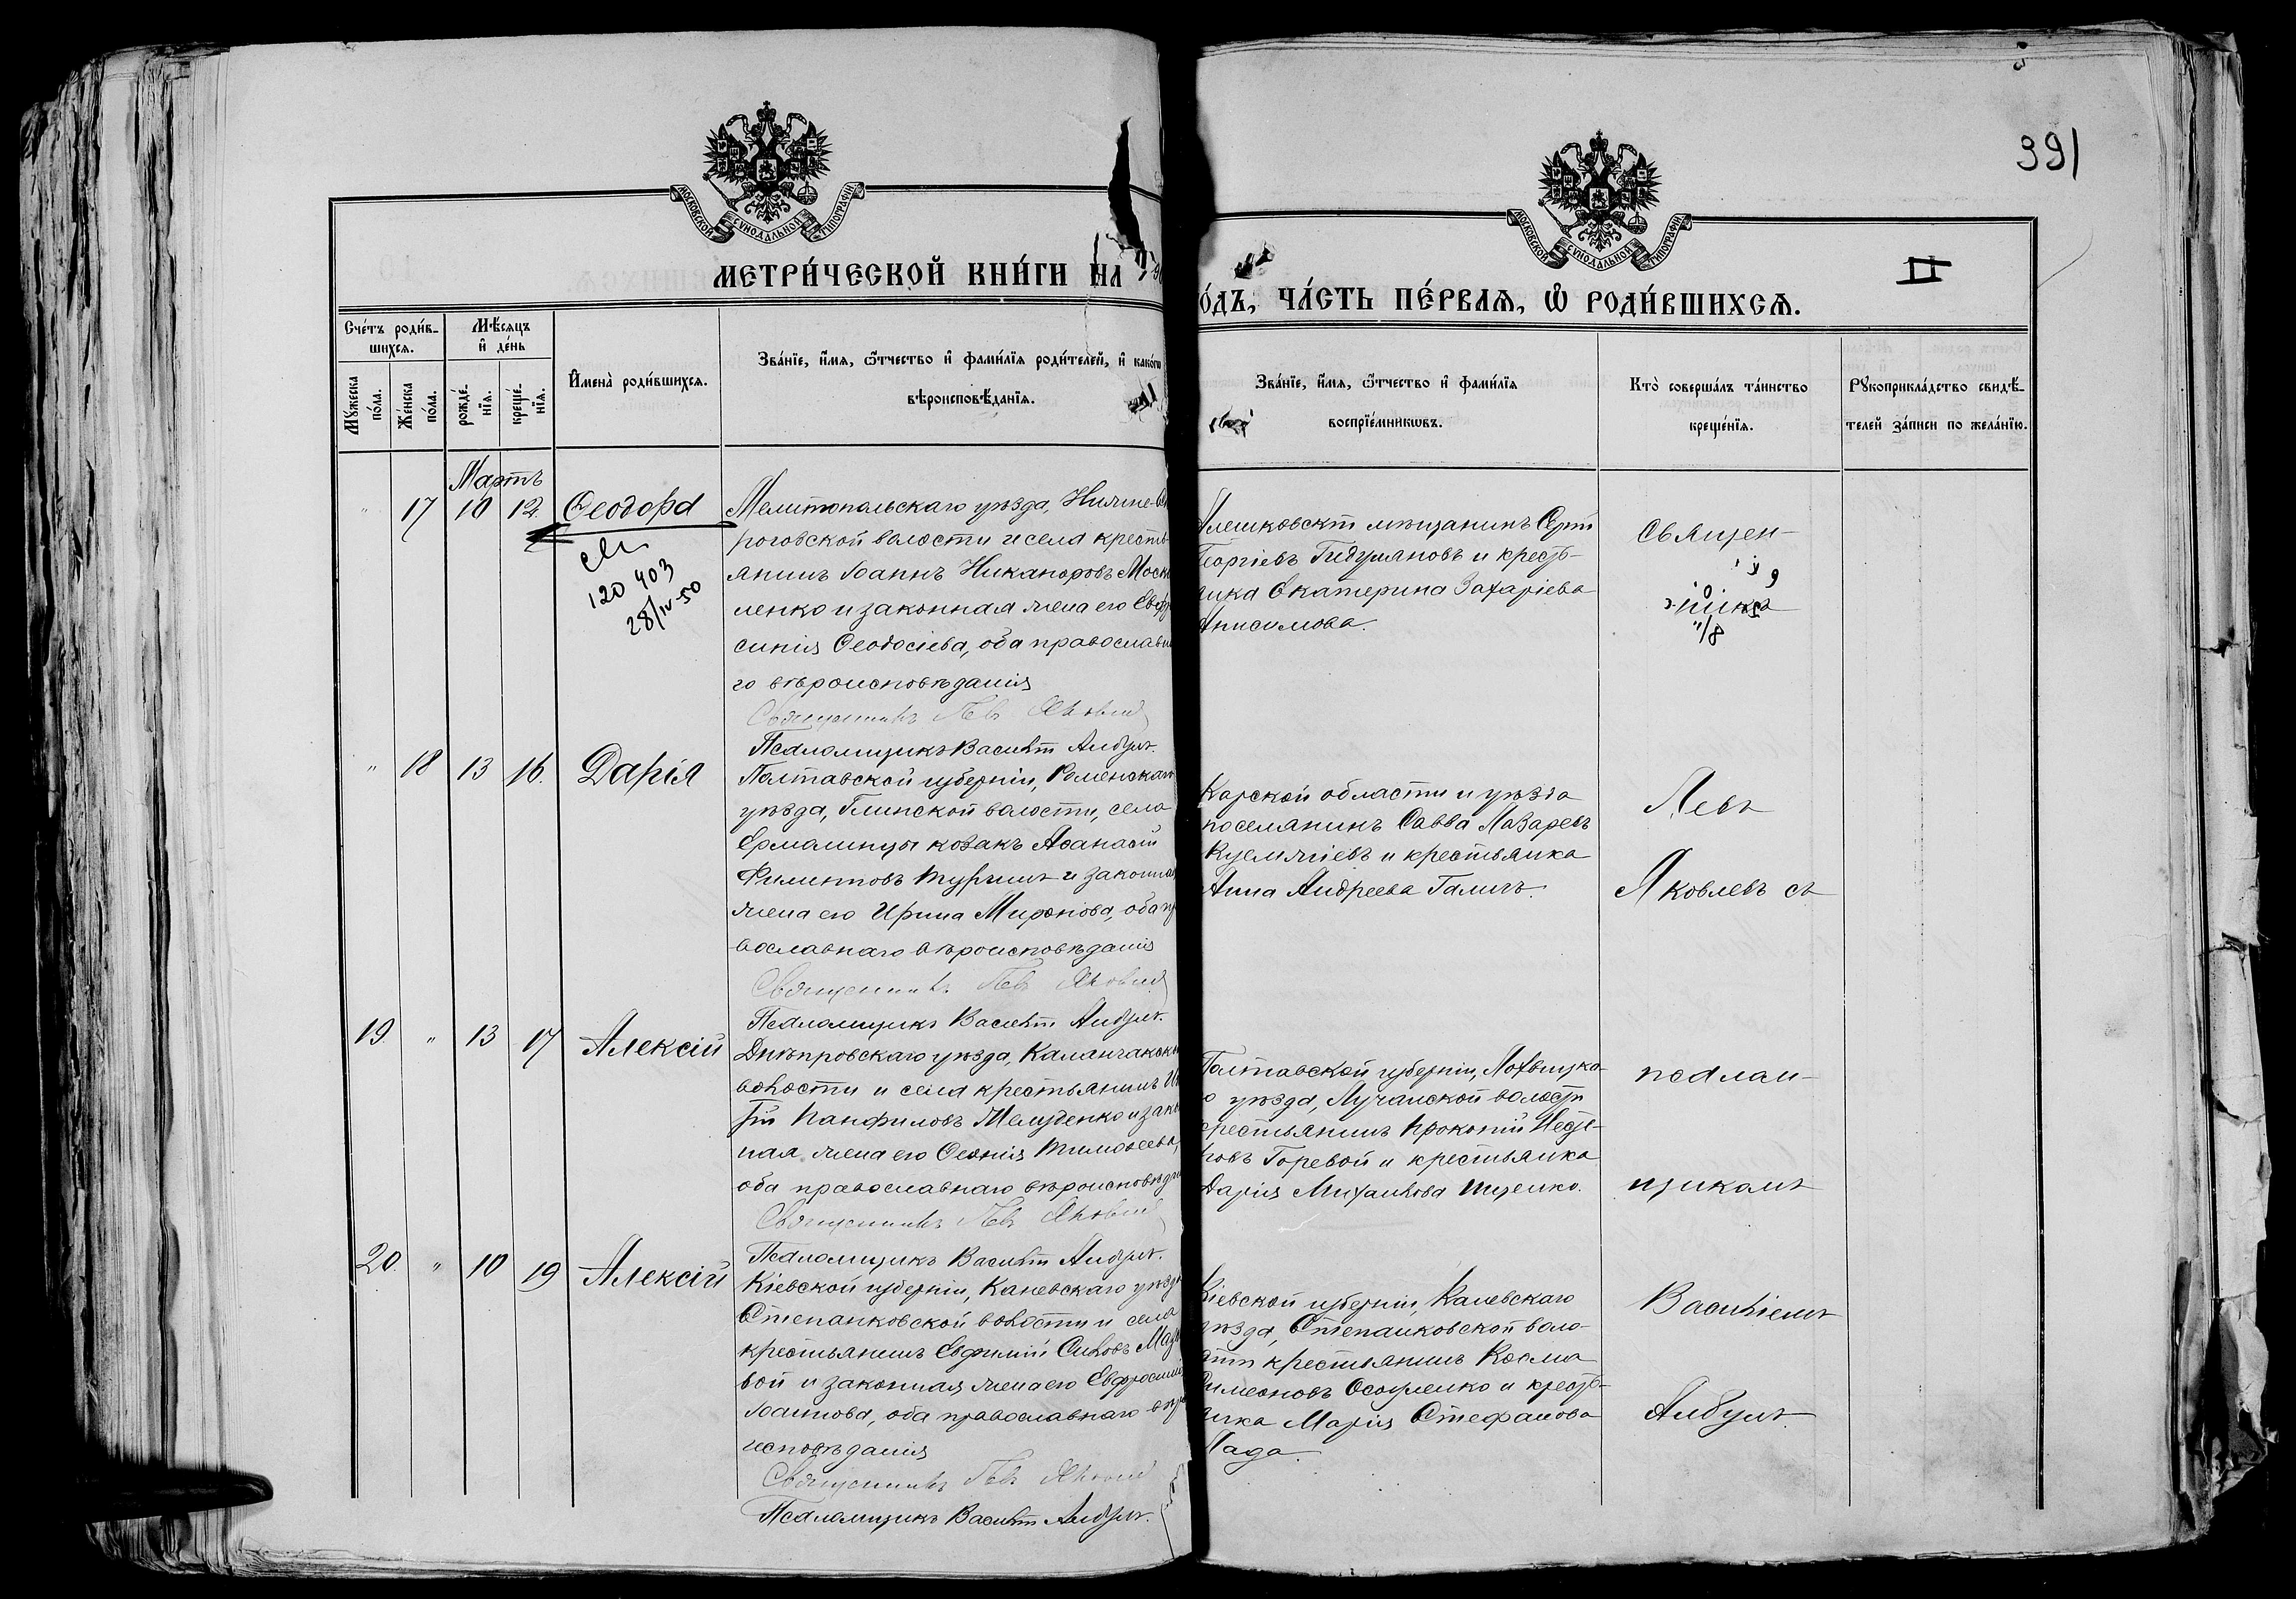 391
II
МОСКОВСКОЙ СѴНОДАЛЬНОЙ ТИПОГРАФІИ
МОСКОВСКОЙ СѴНОДАЛЬНОЙ ТИПОГРАФІИ
МЕТРИ́ЧЕСКОЙ КНИ́ГИ НА
О́ДЪ, ЧА́СТЬ ПЕ́РВАѦ, Ѡ РОДИ́ВШИХСѦ.
Сче́тъ роди́в-
шихсѧ.
Мѣ́сѧцъ
и҆ де́нь
Мꙋ́жеска
по́ла.
Же́нска
по́ла.
рожде́-
нїѧ.
креще́-
нїѧ.
И҆мена̀ роди́вшихсѧ.
Зва́нїе, и҆́мѧ, ѻ҆́тчество и҆ фами́лїѧ роди́телей, и҆ како́гѡ
вѣроисповѣ́данїѧ.
Зва́нїе, и҆́мѧ, ѻ҆́тчество и҆ фами́лїѧ
воспрїе́мникѡвъ.
Кто̀ соверша́лъ та́инство
креще́нїѧ.
Рꙋкоприкла́дство свидѣ́-
телей за́писи по жела́нїю.
Мартъ
" 17 10 12. Ѳеодора
120 403
28/IV-50
Мелитопольскаго уѣзда, Нижне-
роговской волости и села кресть-
янинъ Іоаннъ Никаноровъ Моск
ленко и законная жена его Евфр
синія Ѳеодосіева, оба православн
го вѣроисповѣданія
Священникъ Левъ Яковлев
Псаломщикъ Василій Албулъ.
Алешковскій мѣщанинъ
Георгіевъ Гидуляновъ и кресть-
янка Екатерина Захаріева
Анисимова.
" 18 13 16. Дарія
Полтавской губерніи, Роменскаго
уѣзда, Глинской волости, села
Ермалинцы козакъ Аѳанасій
Филиповъ и законная
жена его Ирина Миронова, оба пр
вославнаго вѣроисповѣданія
Священникъ Левъ Яковлев
Псаломщикъ Василій Албулъ.
Карской области и уѣзда
поселянинъ Савва Лазаревъ
и крестьянка
Анна Андреева Галичъ.
19 " 13 17 Алексій
Днѣпровскаго уѣзда, Каланчакско
волости и села крестьянинъ
Панфиловъ и зако
ная жена его Ѳеонія Тимоѳеева,
оба православнаго вѣроисповѣда
Священникъ Левъ Яковлев
Псаломщикъ Василій Албулъ.
Полтавской губерніи, Лохвицка-
о уѣзда, Лучанской волости
крестьянинъ Прокопій
Горевой и крестьянка
Дарія Михаилова Ищенко.
20. " 10 19 Алексій
Кіевской губерніи, Каневскаго уѣзда
Степанковской волости и села
крестьянинъ Евфимій Силовъ Маз
вой и законная жена его Евфросині
Іоаннова, оба православнаго вѣр
исповѣданія
Священникъ Левъ Яковлев
Псаломщикъ Василій Албулъ.
Кіевской губерніи, Каневскаго
уѣзда, Степанковской воло-
сти крестьянинъ Косма
Симеоновъ и кресть-
янка Марія Стефанова
Лада.
Священ-
никъ
Левъ
Яковлевъ съ
псалом-
щикомъ
Василіемъ
Албулъ.